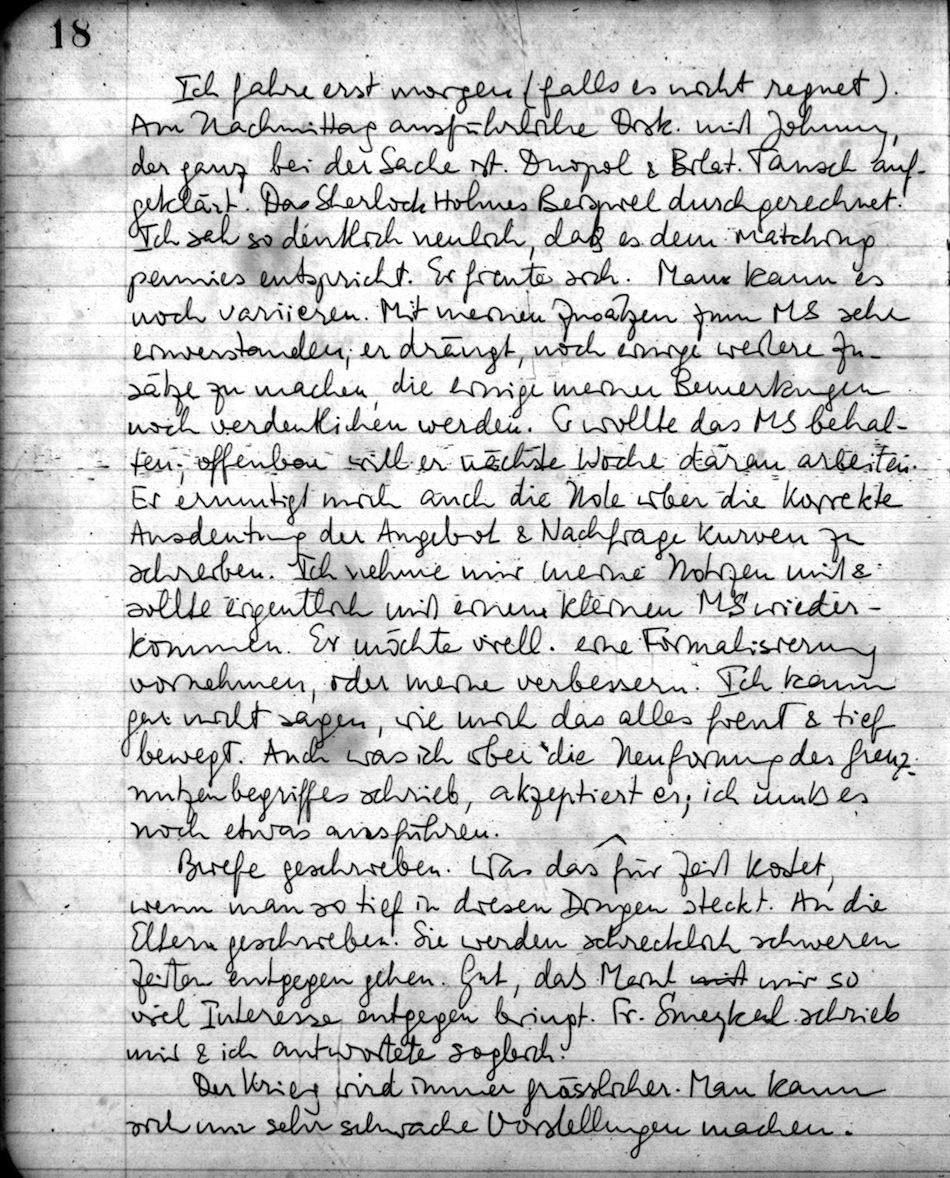 18
Ich fahre erst morgen (falls es nicht regnet).
Am Nachmittag ausführliche Disk. mit Johnny,
der ganz bei der Sache ist. Duopol & Bilat. Tausch auf-
geklärt. Das Sherlock Holmes Beispiel durchgerechnet.
Ich sah so deutlich neulich, daß es dem matching
pennies entspricht. Er freute sich. Man kann es
noch variieren. Mit meinen Zusätzen zum MS sehr
einverstanden; er drängt, noch einige weitere Zu-
sätze zu machen, die einige meiner Bemerkungen
noch verdeutlichen werden. Er wollte das MS behal-
ten; offenbar will er nächste Woche daran arbeiten.
Er ermutigt mich auch die Note über die korrekte
Ausdeutung der Angebot & Nachfrage Kurven zu
schreiben. Ich nehme mir meine Notizen mit &
sollte eigentlich mit einem kleinen MS wieder-
kommen. Er möchte viell. eine Formalisierung
vornehmen, oder meine verbessern. Ich kann
gar nicht sagen, wie mich das alles freut & tief
bewegt. Auch was ich über die Neuformung des Grenz-
nutzenbegriffes schrieb, akzeptiert er; ich muß es
noch etwas ausführen.
Briefe geschrieben. Was das für Zeit kostet,
wenn man so tief in diesen Dingen steckt. An die
Eltern geschrieben. Sie werden schrecklich schweren
Zeiten entgegen gehen. Gut, daß mir so
viel Interesse entgegen bringt. Fr. Smeykal schrieb
mir & ich antwortete sogleich.
Der Krieg wird immer grässlicher. Man kann
sich nur sehr schwache Vorstellungen machen.